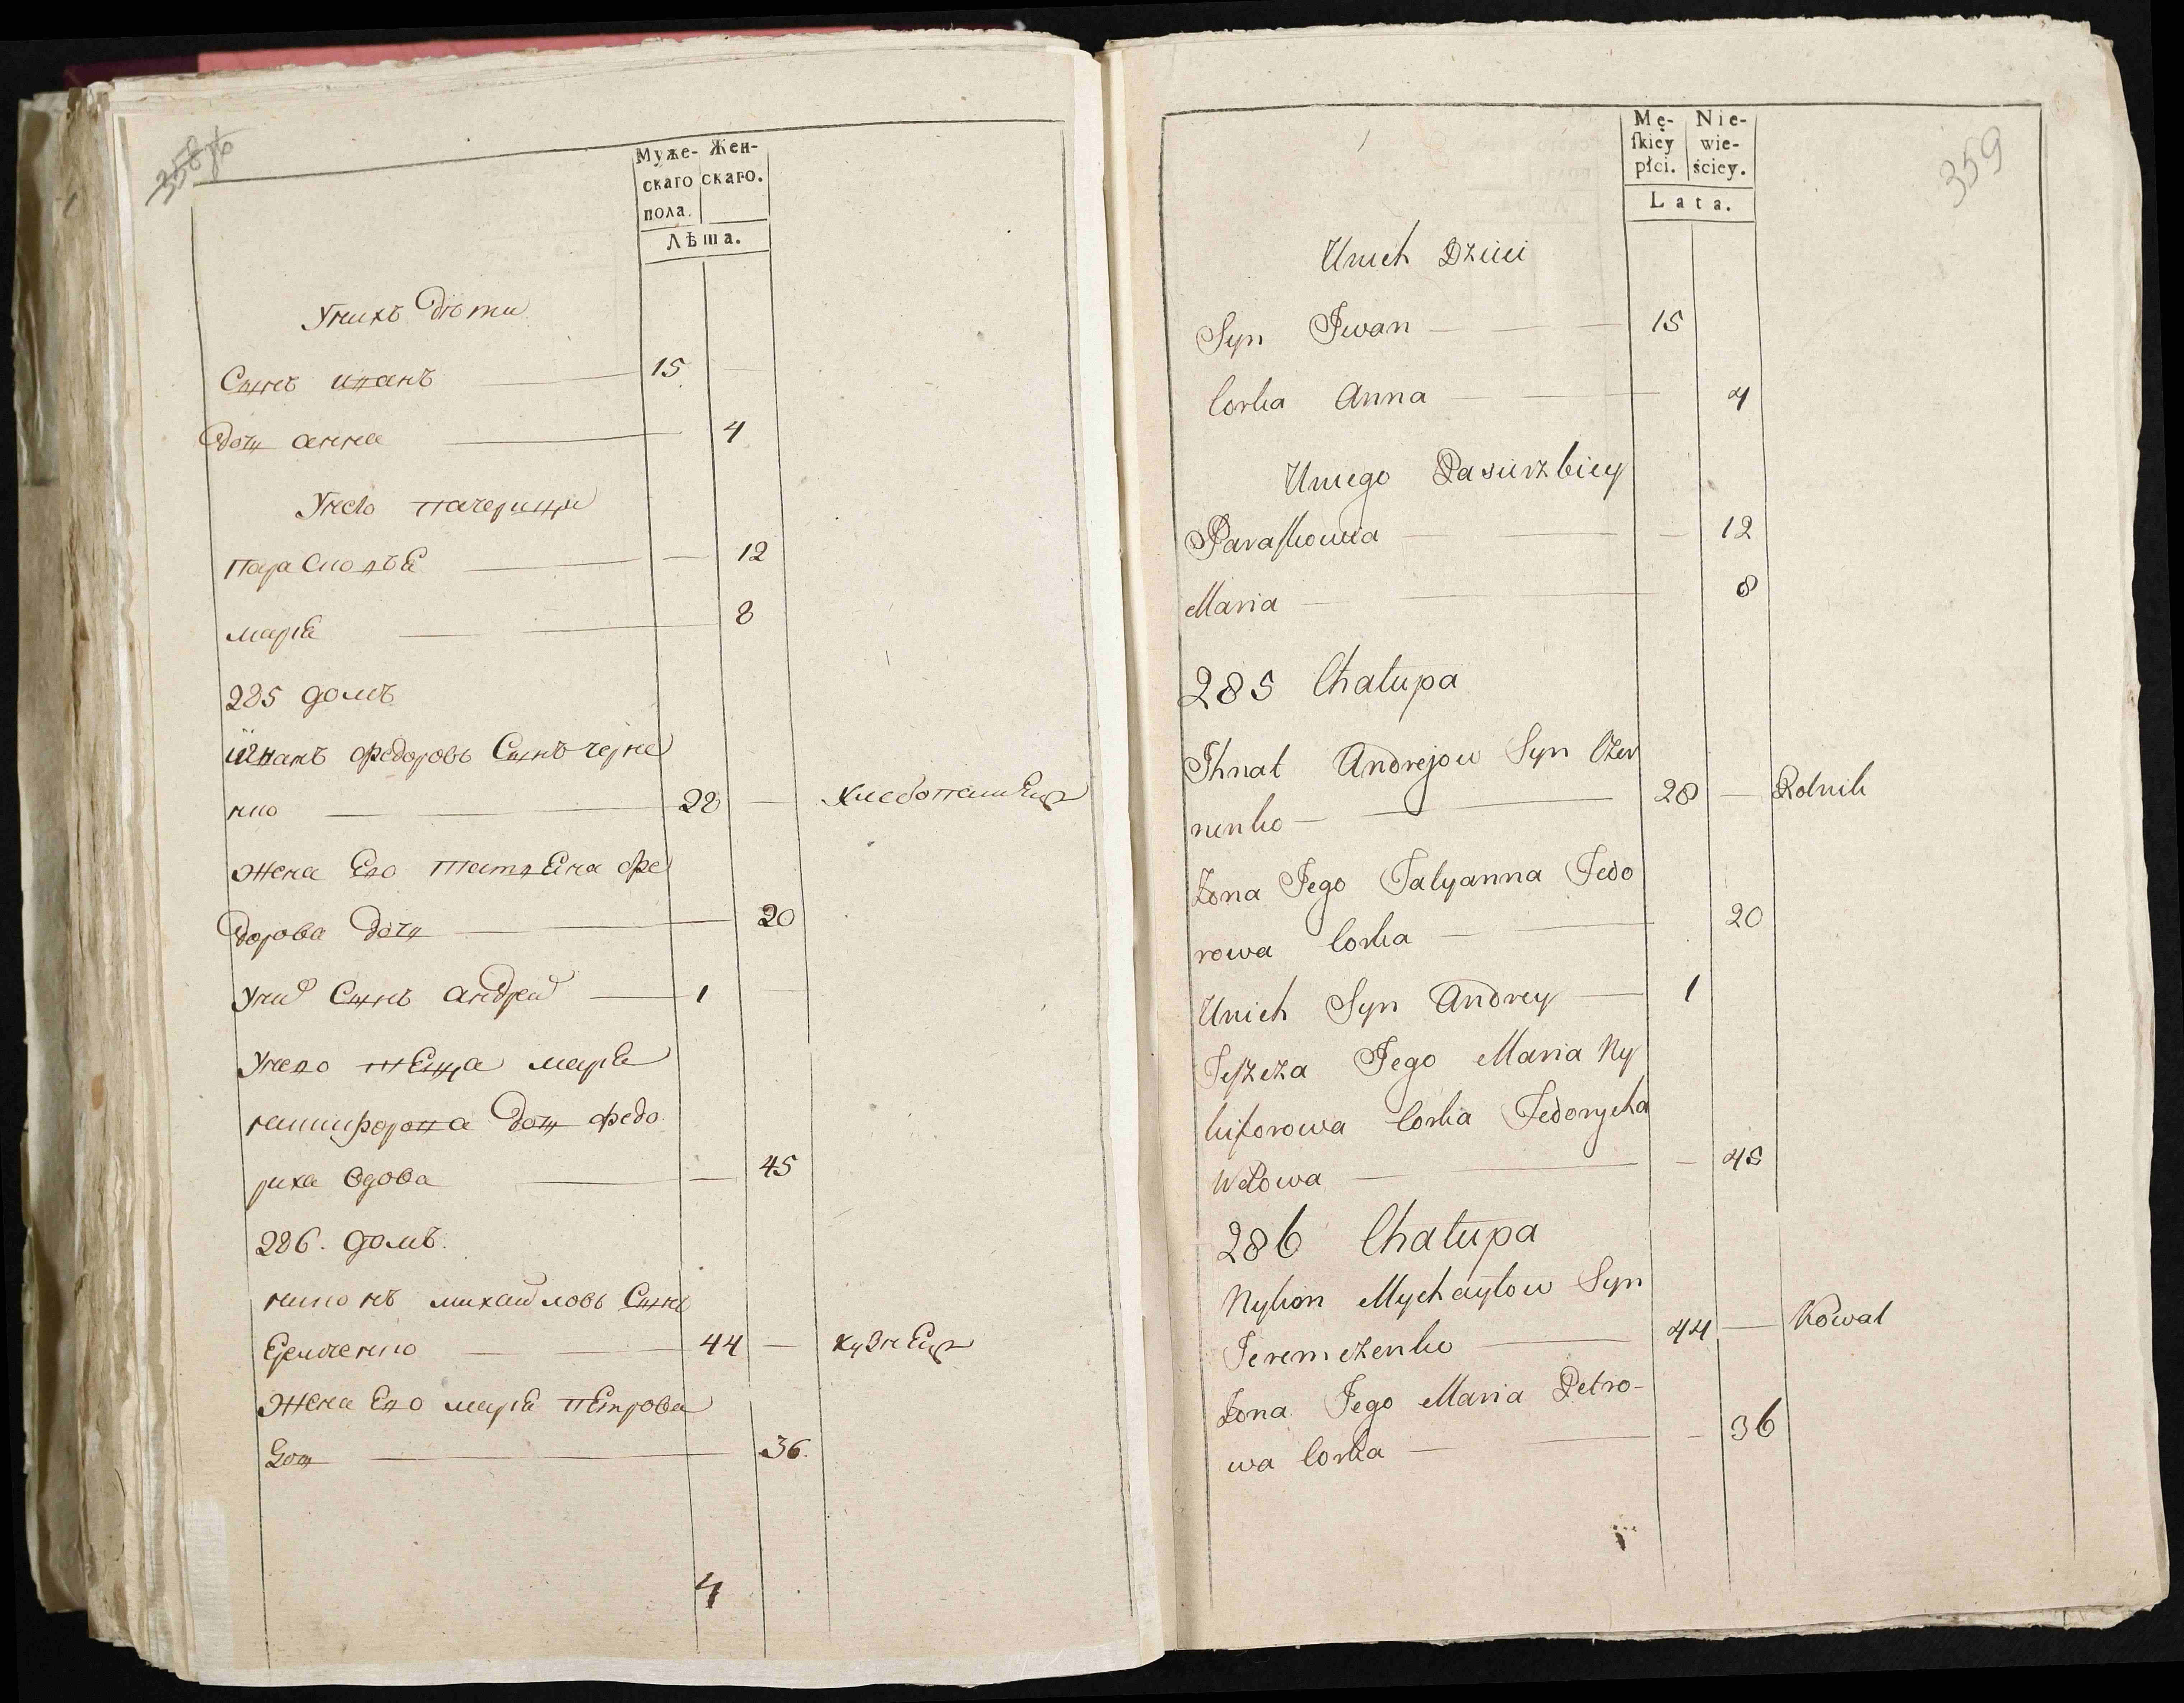 358 об
Муже-
скаго
пола.
Жен-
скаго.
Лѣта.
Уних дѣти
Сынъ иванъ 15
дочь анна 4
Унего падчерици
парасковѣя 12
мария 8
285 домъ
федоровъ Сынъ черне
нко 28 — хлебопашецъ
жена Его татяна фе
дорова дочь 20
Уних Сынъ андрей 1
Унего теща мария
никифорова дочь федо
риха вдова — 45
286. домъ.
никонъ михайловъ Сынъ
Еремченко 44 — кузнецъ
жена Его мария петрова
дочь 36.
4
359
Mę-
skiey
płci.
Nie-
wie-
ściey.
Lata.
Unich Dzieci
Syn Iwan 15
Corka Anna 4
Uniego Pasierzbicy
Paraskowia — 12
Maria 8
285 Chałupa
Ihnat Andrejow Syn Czer
nenko 28 — Rolnik
Żona Jego Tatyanna Fedo
rowa Corka 20
Unich Syn Andrey 1
Teszcza Jego Maria Ny
kiforowa Corka Fedorycha
Wdowa — 45
286 Chałupa
Nykon Mychayłow Syn
Jeremczenko 44 — Kowal
Żona Jego Maria Petro-
wa Corka — 36